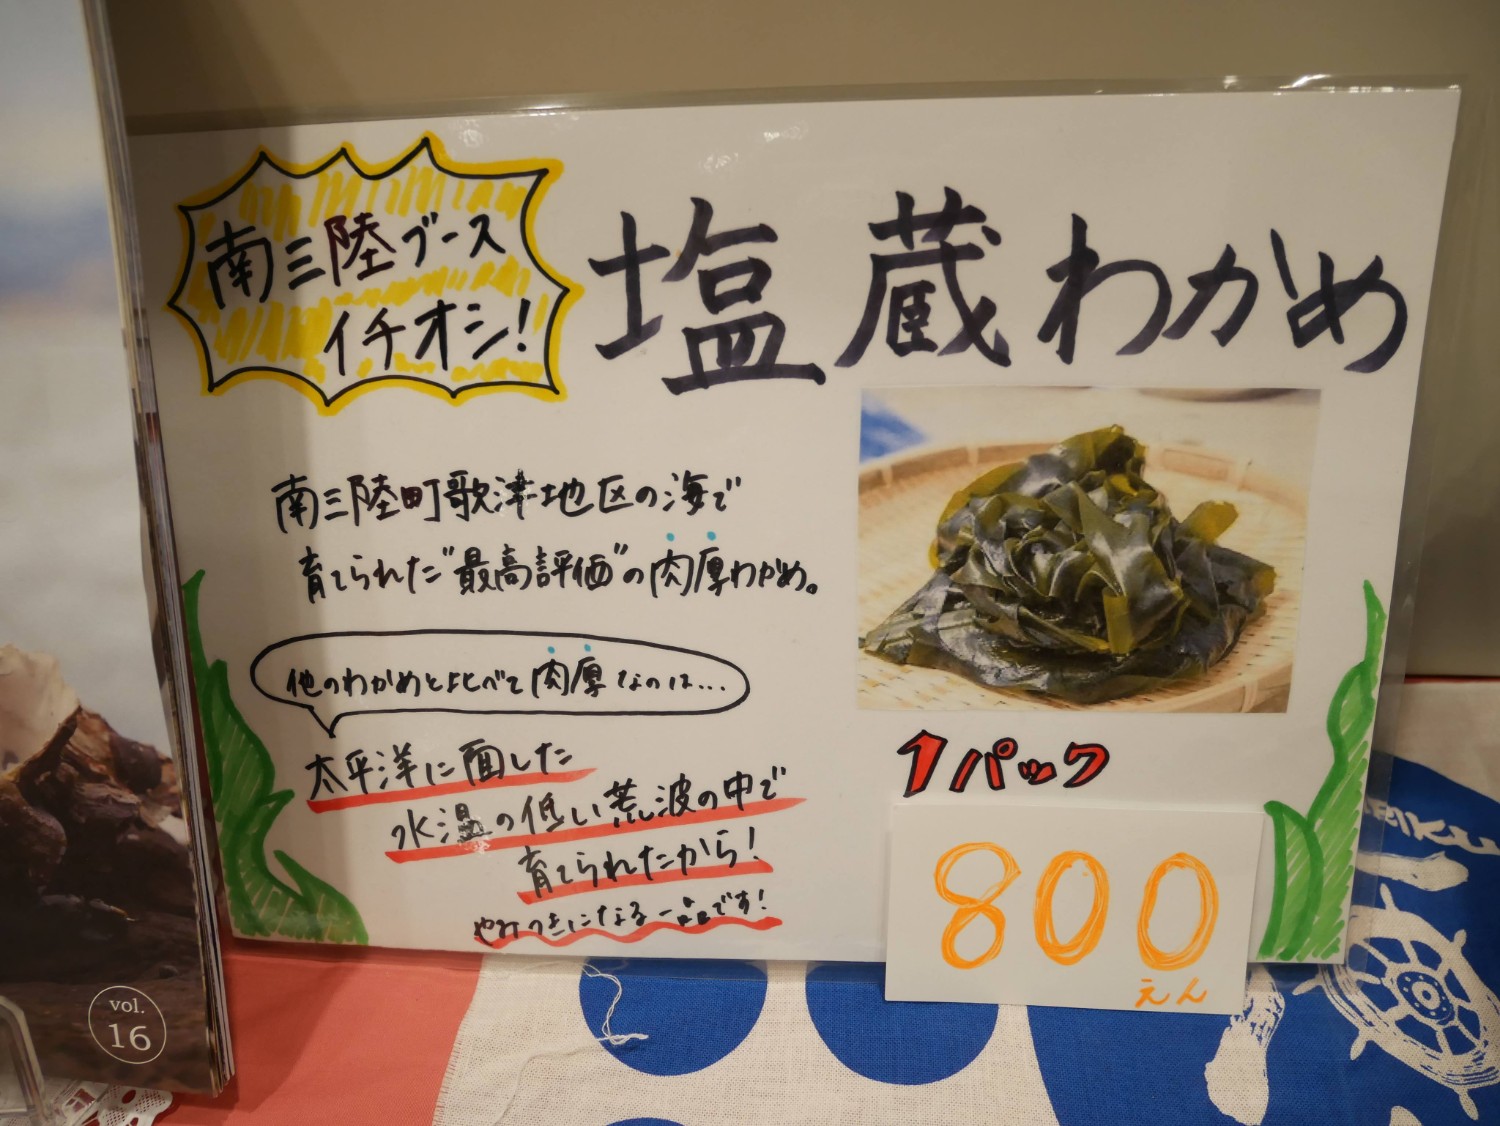 南三陸ブース
イチオシ!
塩蔵わかめ
南三陸町歌津地区の海で
育てられた"最高評価"の肉厚わかめ。
他のわかめと比べて肉厚なのは…
太平洋に面した
水温の低い荒波の中で
育てられたから!
やみつきになる一品です!
1パック
800
えん
vol.
16